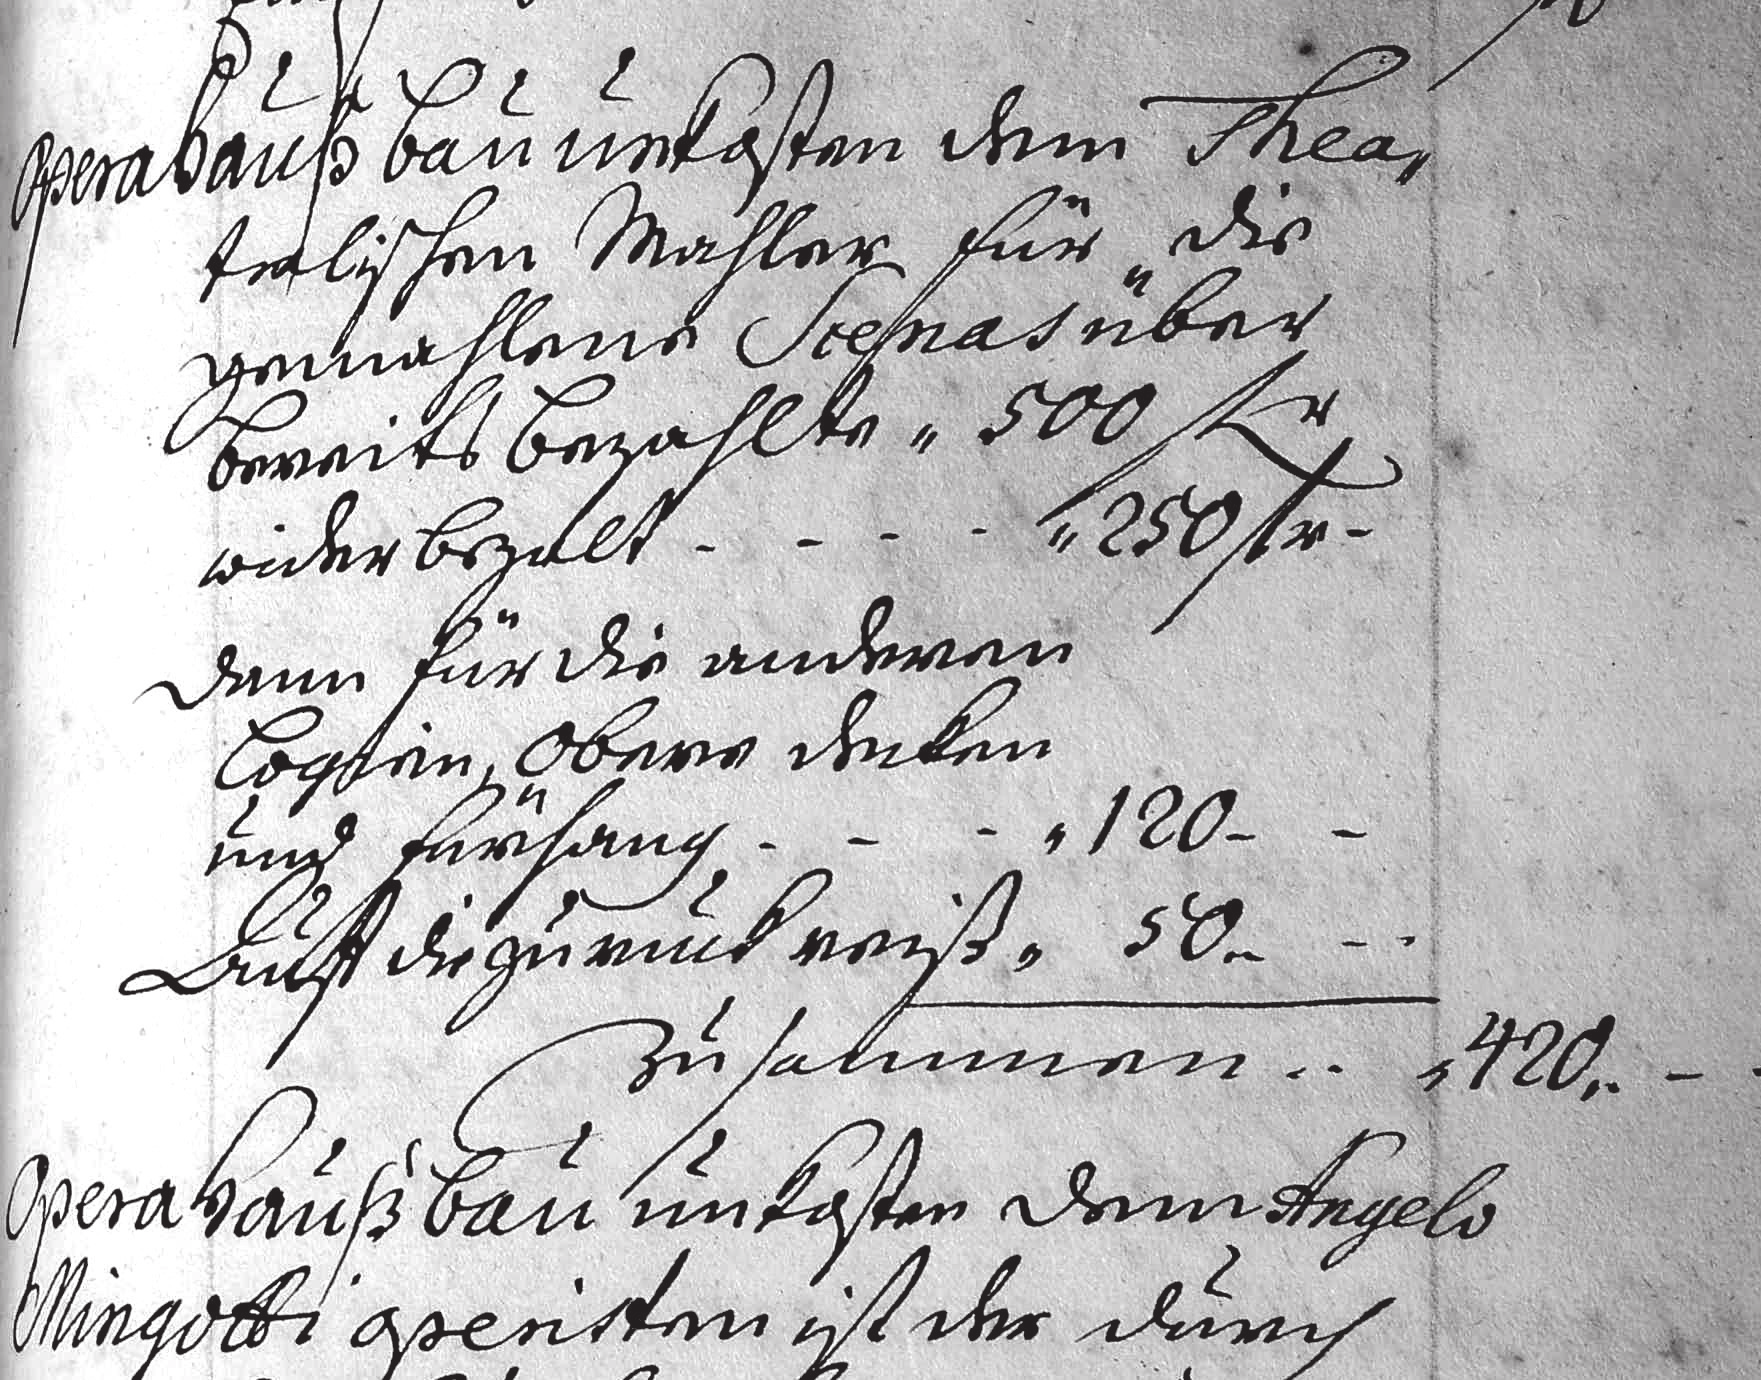 Opera hauß bau unkosten dem Thea„
tralischen Mahler für die
gemahlene Scenas über
bereits bezahlte „ 500 fl
wider bezalt - - - - „ 250 fl -
Dann für die anderen
Logien, Obere decken
und fürhang - - - „ 120 - -
Auff die zuruck reiß „ 50 - -
Zusammen .. „ 420 . -
Opera hauß bau unkosten dem Angelo
Mingotti operisten ist der durch